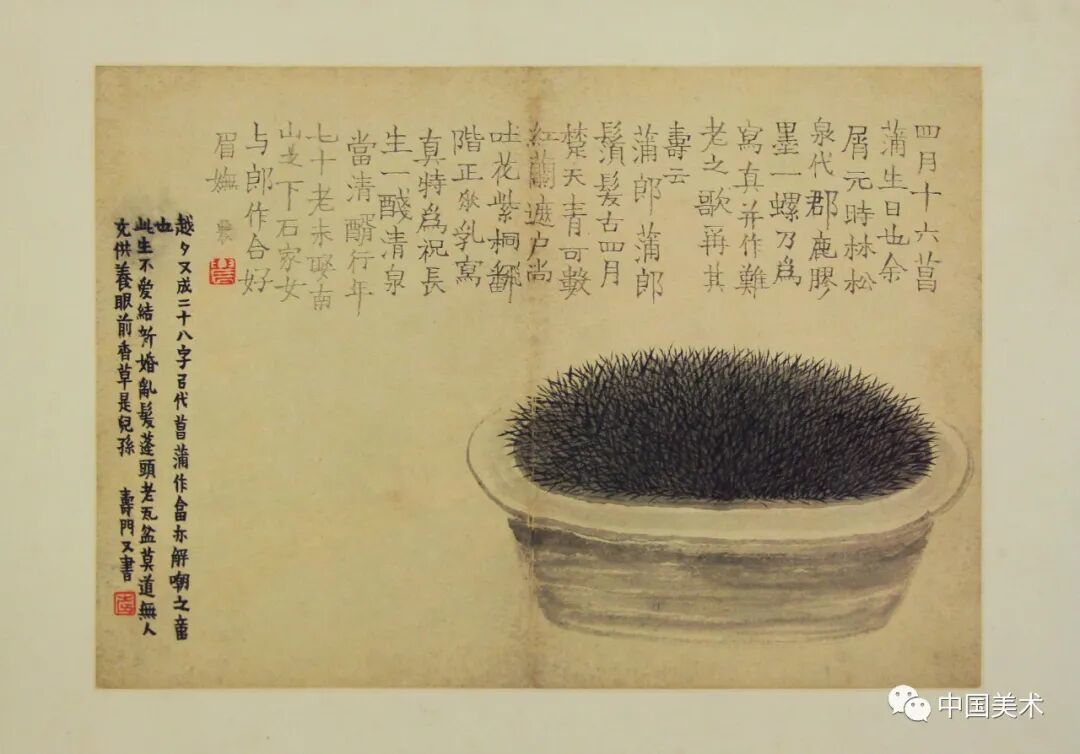 四月十六菖
蒲生日也余
屑元時林松
泉代郡鹿膠
墨一螺乃為
寫真并作難
老之歌稱其
壽云
蒲郎蒲郎
鬚髮古四月
楚天青可數
紅蘭遮户尚
吐花紫桐鄰
階正乳寫
真特為祝長
生一醆清泉
當清醑行年
七十老未娶南
山之下石家女
与郎作合好
眉嫵 農
越夕又成二十八字㠯代菖蒲作畣亦解嘲之意
也
此生不爱結新婚亂髮蓬頭老瓦盆莫道無人
充供養眼前香草是兒孫 壽門又書
中国美术